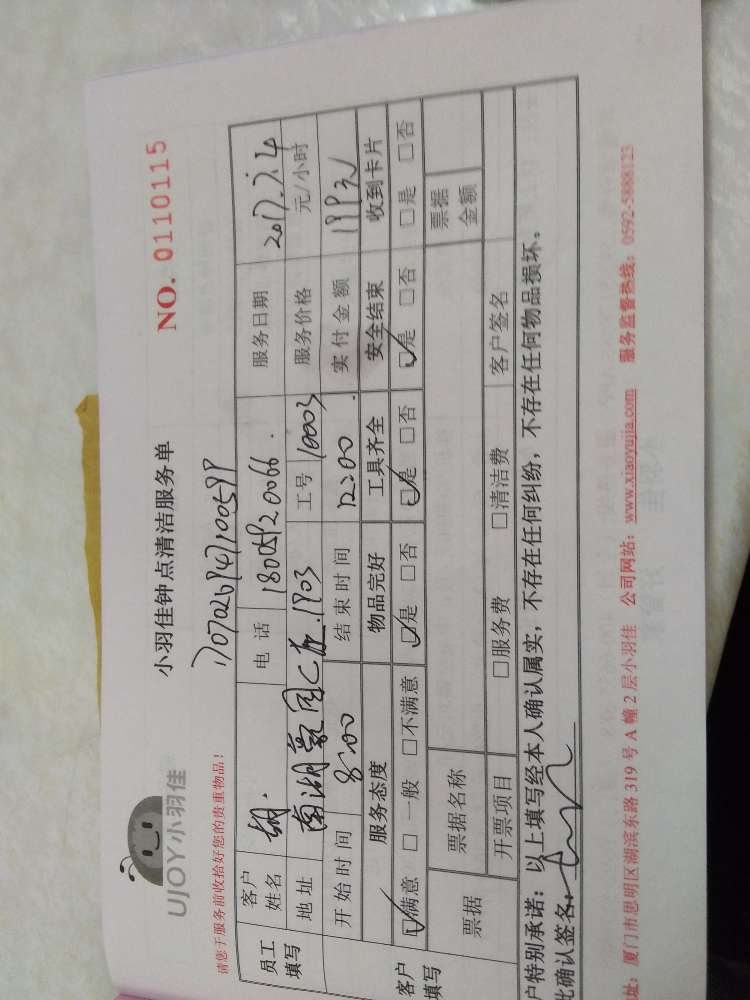 UJOY小羽佳
小羽佳钟点清洁服务单
NO. 0110115
请您于服务前收拾好您的贵重物品！
员工填写
客户姓名 胡. 电话 服务日期 2017.7.24
地址 南湖豪园C 1903 工号 10003 服务价格 元/小时
开始时间 8:00 结束时间 12:00 实付金额 199元
客户填写
服务态度 物品完好 工具齐全 安全结束 收到卡片
☑满意 □一般 □不满意 ☑是 □否 ☑是 □否 ☑是 □否 □是 □否
票据 票据名称 票据金额
开票项目 □服务费 □清洁费 客户签名
户特别承诺：以上填写经本人确认属实，不存在任何纠纷，不存在任何物品损坏。
此确认签名：
址：厦门市思明区湖滨东路 319 号 A 幢 2 层小羽佳 公司网站：www.xiaoyujia.com 服务监督热线：0592-5888123